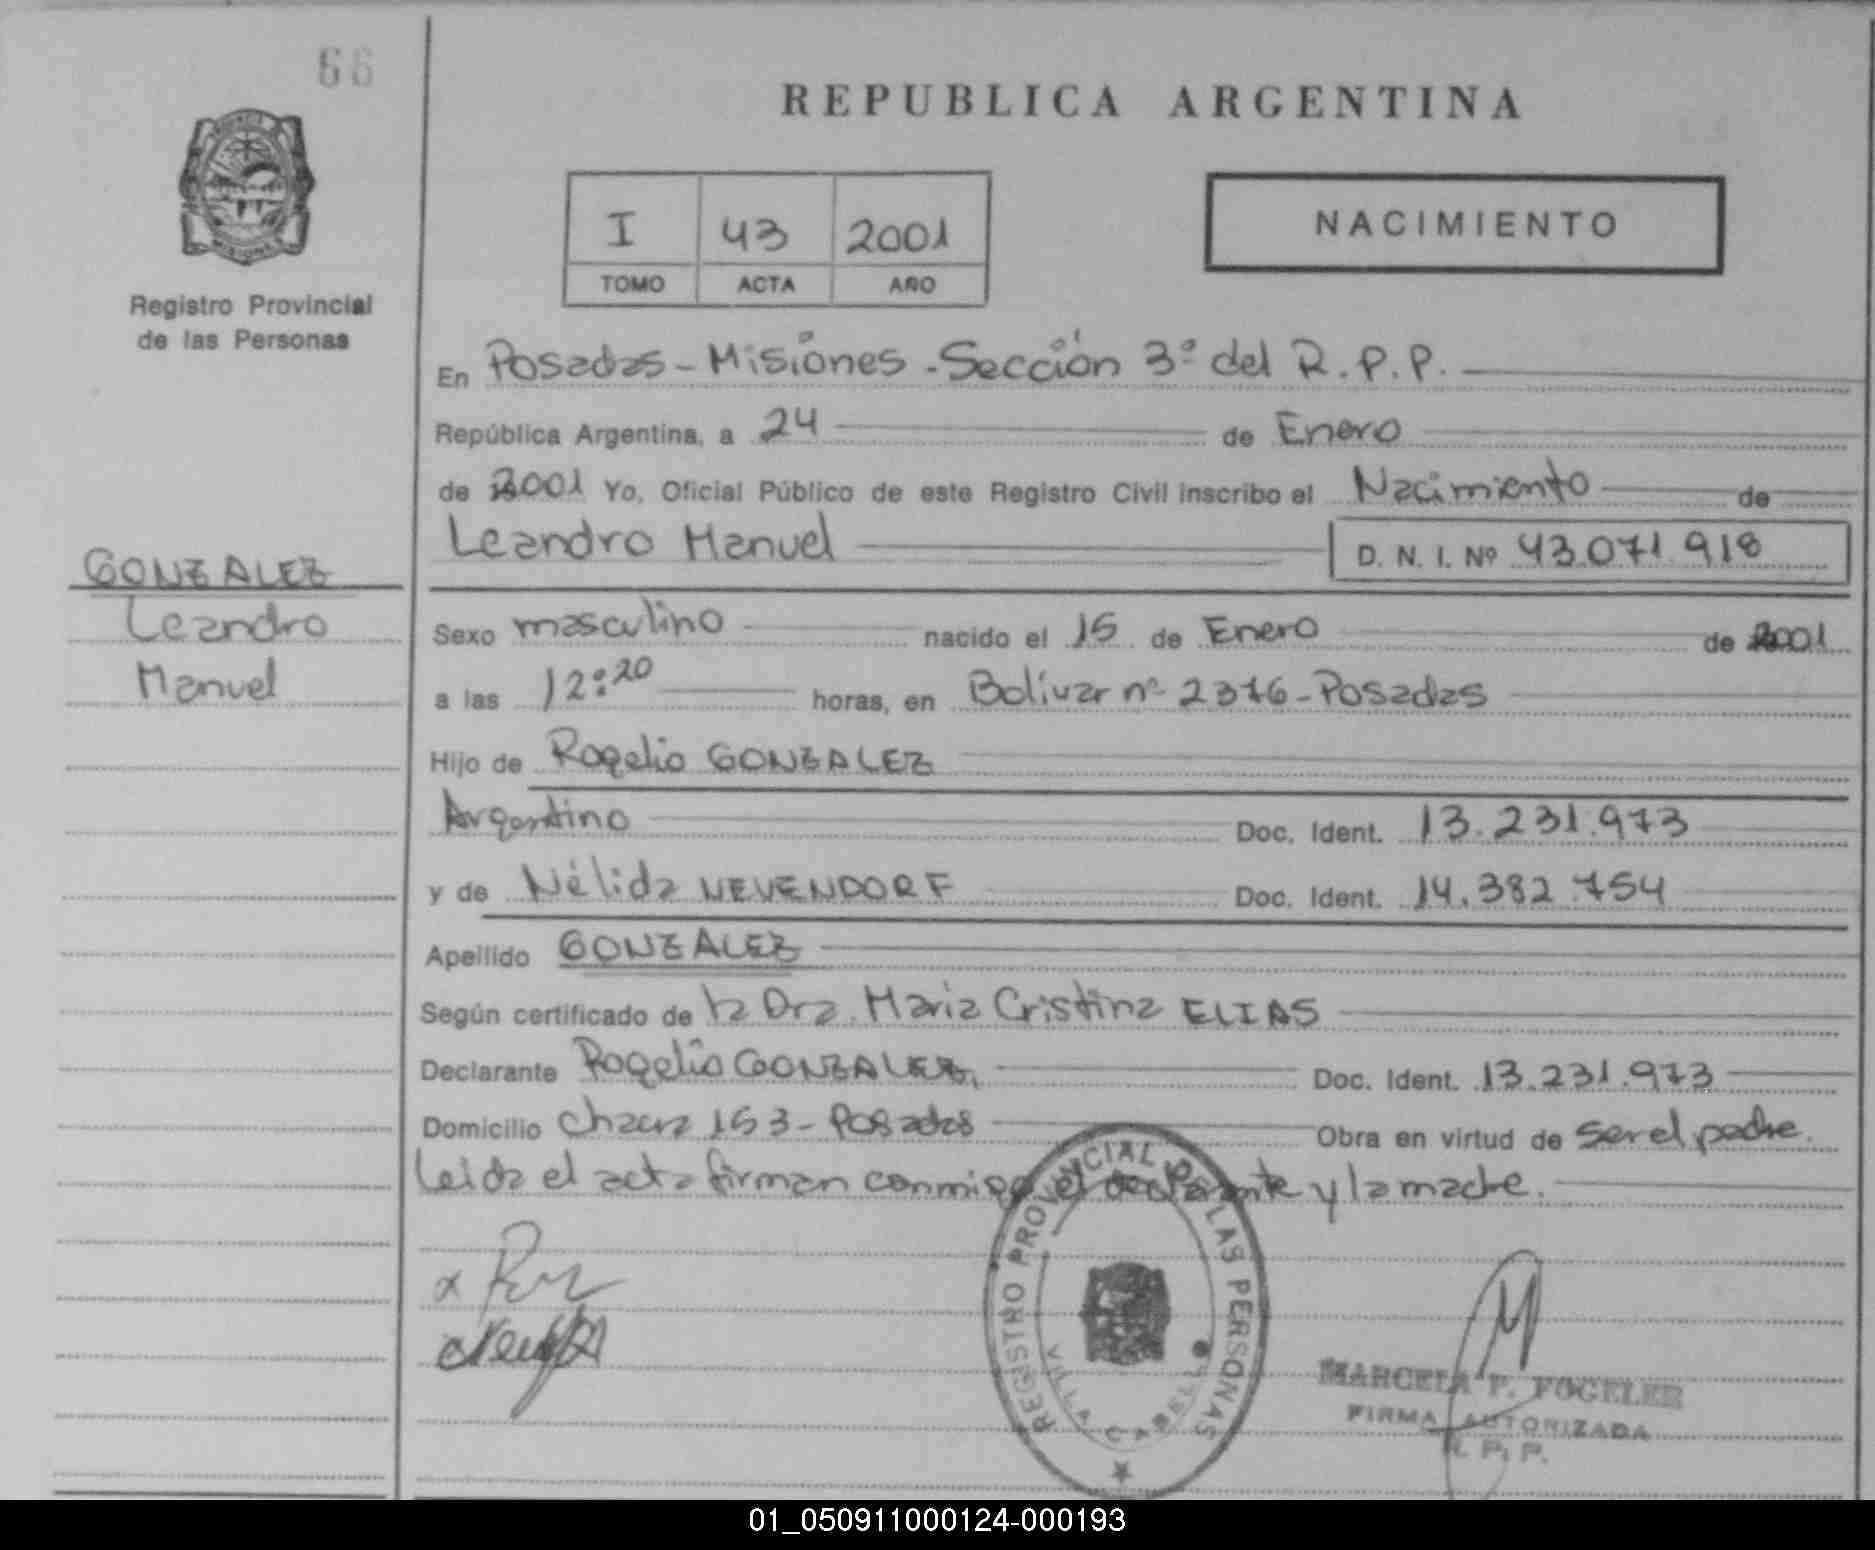 66
REPUBLICA ARGENTINA
I 43 2001
TOMO ACTA AÑO
NACIMIENTO
Registro Provincial
de las Personas
En Posadas - Misiones - Sección 3º del R.P.P.
República Argentina, a 24 de Enero
de 2001 Yo, Oficial Público de este Registro Civil inscribo el Nacimiento de
Leandro Manuel D. N. I. Nº 43.071.918
GONZALEZ
Leandro
Manuel
Sexo masculino nacido el 15 de Enero de 2001
a las 12:20 horas, en Bolívar nº 2376 - Posadas
Hijo de Rogelio GONZALEZ
Argentino Doc. Ident. 13.231.973
y de Nélida NEUENDORF Doc. Ident. 14.382.754
Apellido GONZALEZ
Según certificado de la Dra. Maria Cristina ELIAS
Declarante Rogelio GONZALEZ, Doc. Ident. 13.231.973
Domicilio Chacra 153 - Posadas Obra en virtud de ser el padre.
Leída el acta firman conmigo el declarante y la madre.
REGISTRO PROVINCIAL DE LAS PERSONAS
VILLA CABELLO
MARCELA F. FOGELER
FIRMA AUTORIZADA
R. P. P.
01_050911000124-000193